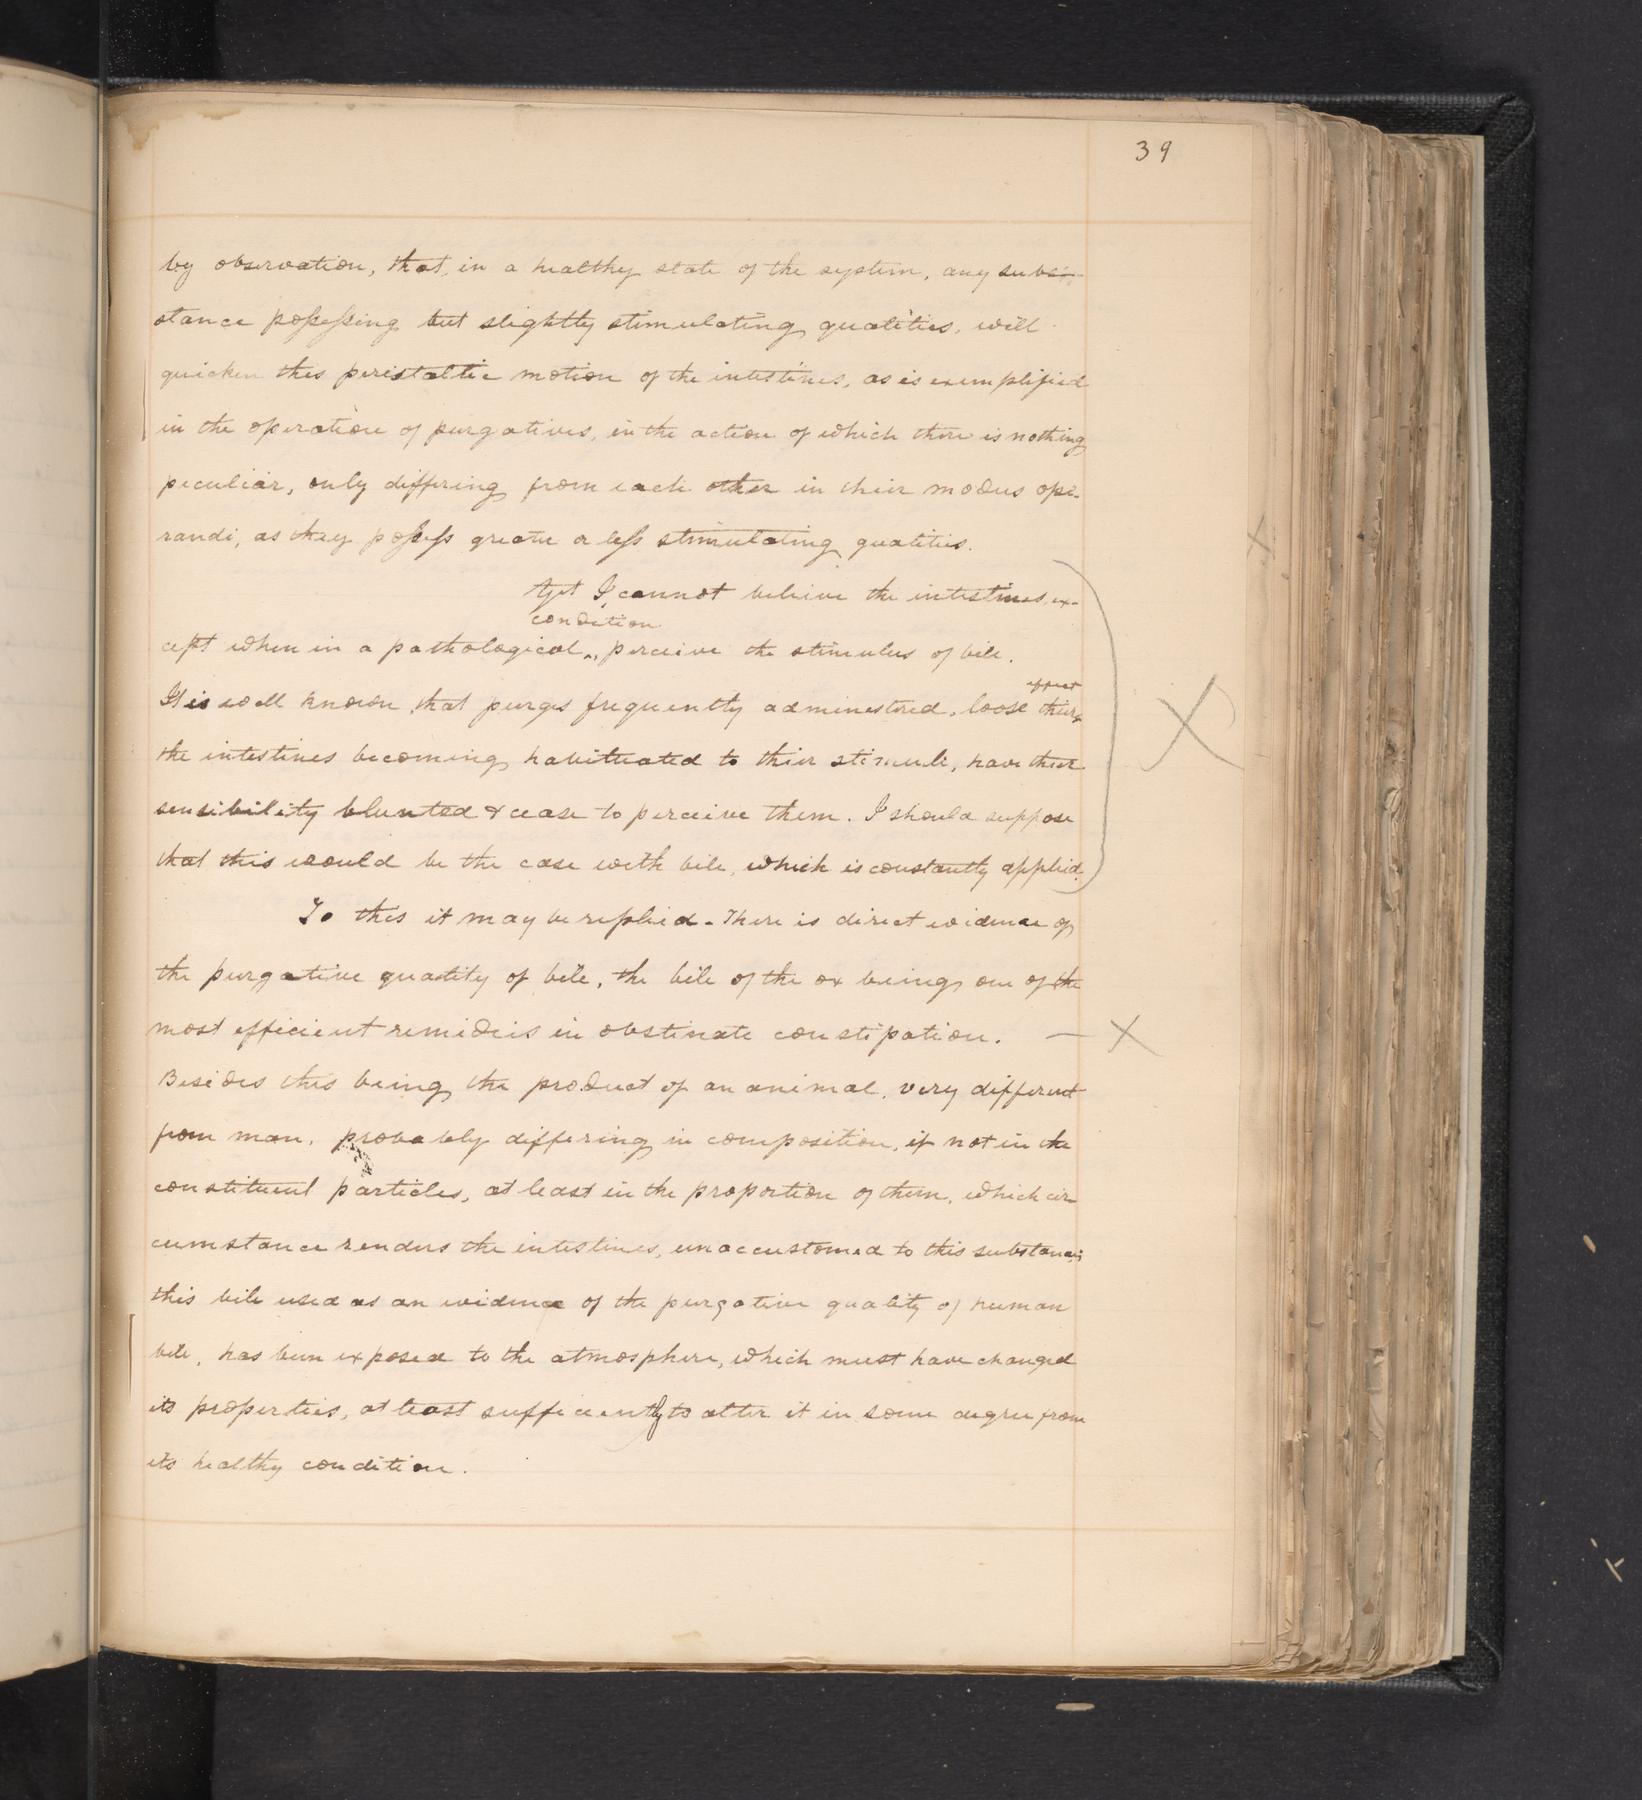 39
by observation, that, in a healthy state of the system, any subs-
stance possessing but slightly stimulating qualities, will
quicken this peristaltic motion of the intestines, as is exemplified
in the operation of purgatives, in the action of which there is nothing
peculiar, only differing from each other in their modus ope-
randi, as they possess greater or less stimulating qualities.
Yet I cannot believe the intestines, ex-
condition
cept when in a pathological ^ perceive the stimulus of bile.
effect
It is well known that purges frequently administered, loose their ^
the intestines becoming habituated to thier stimuli, have their
sensibility blunted & cease to perceive them. I should suppose
that this would be the case with bile, which is constantly applied.
To this it may be replied - There is direct evidence of
the purgative quality of bile, the bile of the ox being one of the
most efficient remideis in obstinate constipation. — X
Besides this being the product of an animal, very different
from man, probably differing in composition, if not in the
constituent particles, at least in the proportion of them, which cir
cumstance renders the intestines, unaccustomed to this substance;
this bile used as an evidence of the purgative quality of human
bile, has been exposed to the atmosphere, which must have changed
its properties, at least sufficiently to alter it in some degree from
its healthy condition.